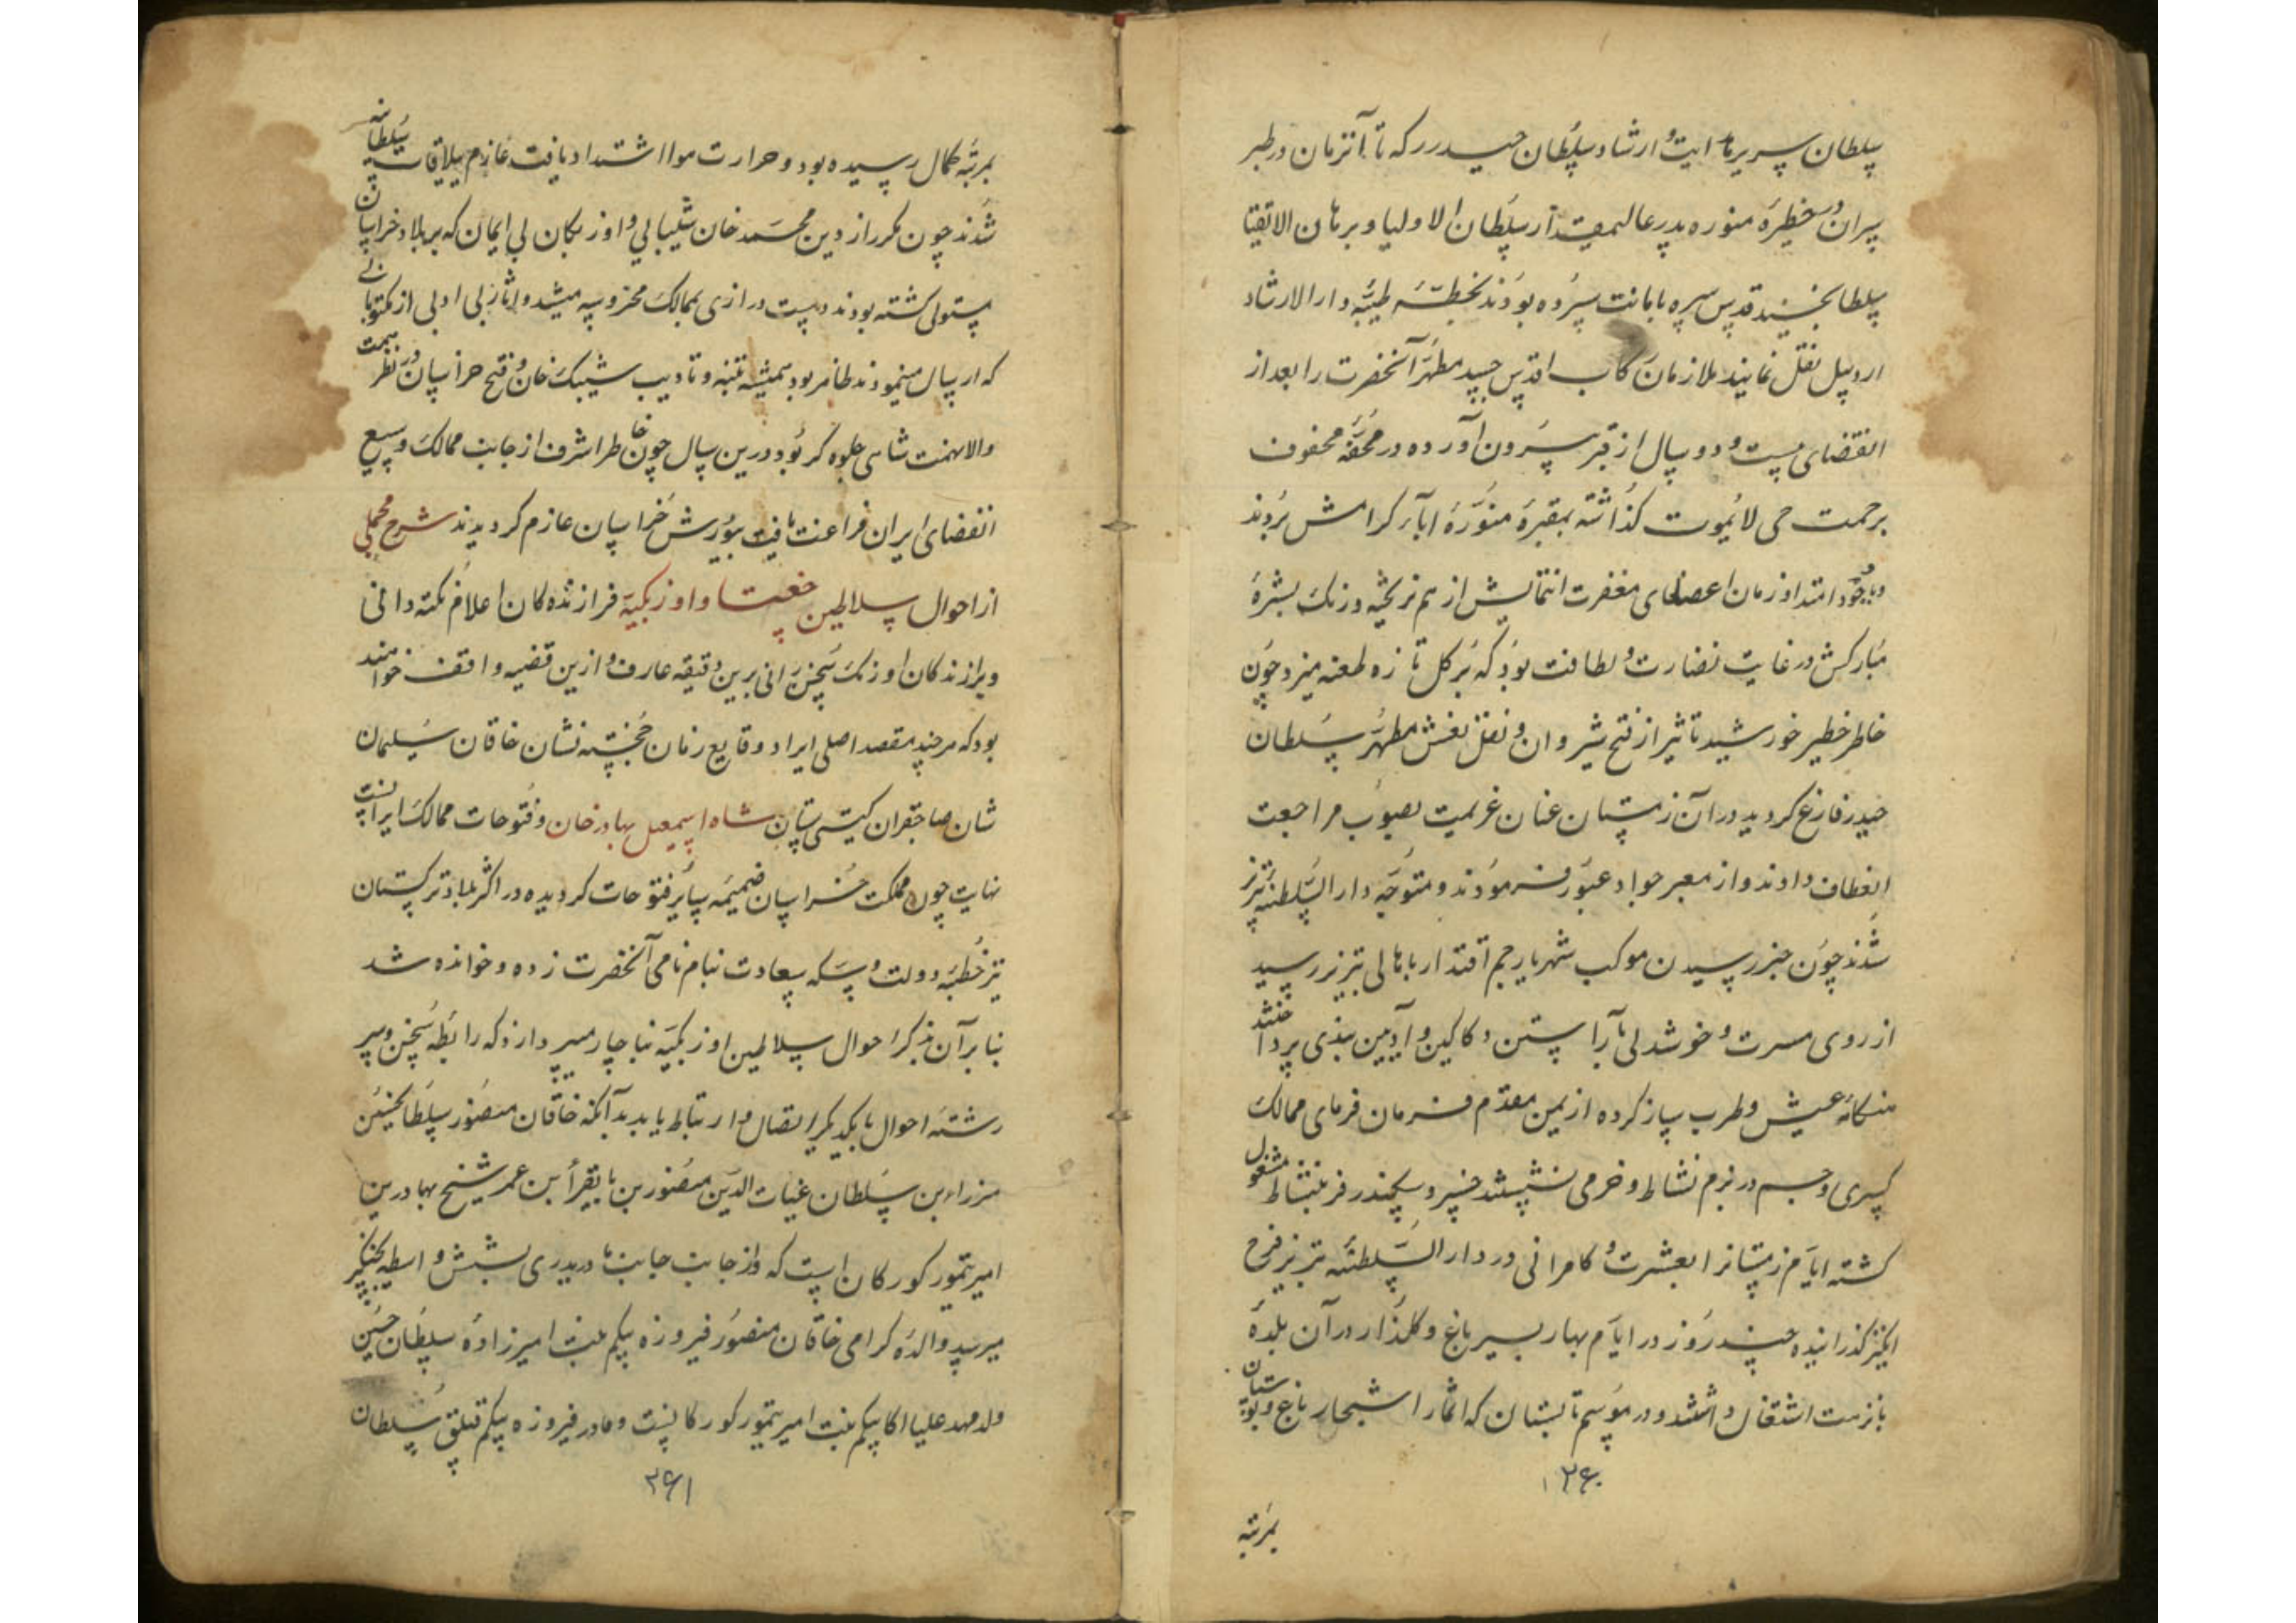 سلطان سریر هدایت و ارشاد سلطان حیدر را که تا آنزمان در طبر
سران و حظیره منوره پدر عالیمقدار سلطان الاولیا و برهان الاتقیا
سلطانجنید قدس سره بامانت سپرده بودند بخطّه طیبه دار الارشاد
اردبیل نقل نمایند ملازمان رکاب اقدس جسد مطهر آنحضرت را بعد از
انقضای بیست و دو سال از قبر بیرون آورده در محفّه محفوف
برحمت حی لا یموت گذاشته بمقبره منوّرهٔ آباء کرامش بردند
و باوجود امتداد زمان اعضای مغفرت انتمایش از هم نریخته و رنک بشرهٔ
مبارکش در غایت نضارت و لطافت بود که بر کل تازه طعنه میزد چون
خاطر خطیر خورشید تاثیر از فتح شیروان و نقل نعش مطهر سلطان
حیدر فارغ کردید در آن زمستان عنان عزیمت بصوب مراجعت
انعطاف دادند و از معبر جواد عبور فرمودند و متوجه دار السلطنه تبریز
شدند چون خبر رسیدن موکب شهریار جم اقتدار باهالی تبریز رسید
از روی مسرت و خوشدلی بآراستن دکاکین و آیین بندی پرداختند
هنکامه عیش و طرب ساز کرده از یمن مقدم فرمان فرمای ممالک
کسری و جم در بزم نشاط و خرمی نشستند خسرو سکندر فر بنشاط مشغول
کشته ایام زمستانرا بعشرت و کامرانی در دار السلطنه تبریز فرح
انکیز کذرانیده چند روز در ایام بهار بسیر باغ و کلزار در آن بلدهٔ
بانزهت اشتغال داشتند و در موسم تابستان که اثمار اشجار باغ و بوستان
۲۶۰
بمرتبه
بمرتبه کمال رسیده بود و حرارت هوا اشتداد یافت عازم ییلاقات سلطانیه
شدند چون مکرر ازین محمد خان شیبانی و اوزبکان بی ایمان که بر بلاد خراسان
مستولی کشته بودند دست درازی بممالک محروسه میشد و آثار بی ادبی از مکتوباتی
که ارسال مینمودند ظاهر بود همیشه تنبه و تادیب شیبک خان و فتح خراسان در نظر همت
والا نهمت شاهی جلوه کر بود درین سال چون خاطر اشرف از جانب ممالک وسیع
الفضای ایران فراغت یافت بیورش خراسان عازم کردیدند شرح مجملی
از احوال سلاطین جغتا و اوزبکیّه فرازندهکان اعلام نکته دانی
و برازندکان اورنک سخن رانی برین دقیقه عارف و ازین قضیه واقف خواهند
بود که هرچند مقصد اصلی ایراد وقایع زمان خجسته نشان خاقان سلیمان
شان صاحبقران کیتی ستان شاه اسمعیل بهادر خان و فتوحات ممالک ایرانست
نهایت چون مملکت خراسان ضمیمه سایر فتوحات کردیده در اکثر بلاد ترکستان
نیز خطبه دولت و سکه سعادت بنام نامی آنحضرت زده و خوانده شد
بنا برآن بذکر احوال سلاطین اوزبکیّه بناچار میپردازد که رابطه سخن و سر
رشته احوال بایکدیکر اتصال و ارتباط یابد بدآنکه خاقان منصور سلطانحسین
میرزا بن سلطان غیاث الدین منصور بن بایقرا بن عمر شیخ بهادر بن
امیر تیمور کورکان است که و از جانب جانب مادر پدری بشش واسطه بچنکیز
میرسد والده کرامی خاقان منصور فیروزه بیکم بنت امیرزاده سلطان حسین
ولد مهد علیا اکا بیکم بنت امیر تیمور کورکانست و مادر فیروزه بیکم قتلق سلطان
۲۶۱